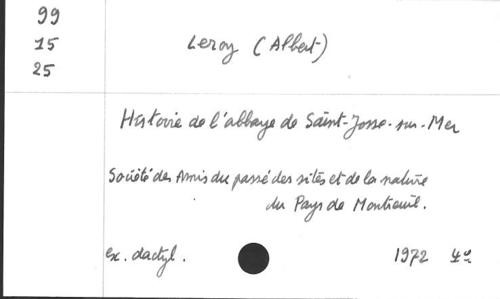 99
15
25
Leroy (Albert)
Histoire de l'abbaye de Saint-Josse-sur-Mer
Société des Amis du passé des sites et de la nature
du Pays de Montreuil.
ex. dactyl. 1972 4º